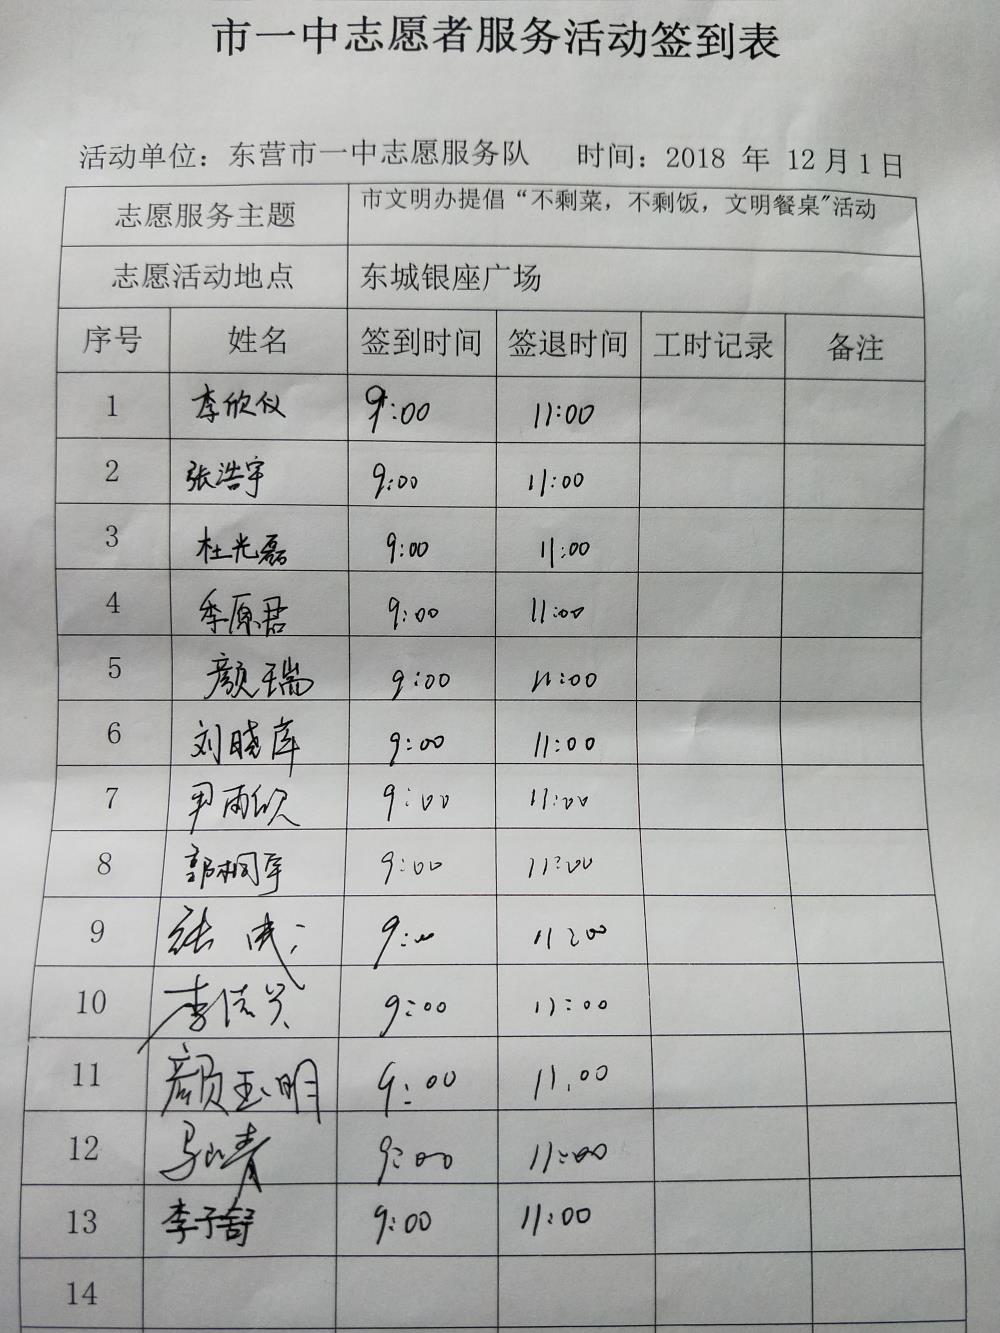 市一中志愿者服务活动签到表
活动单位：东营市一中志愿服务队 时间：2018 年 12月1日
志愿服务主题 市文明办提倡“不剩菜，不剩饭，文明餐桌"活动
志愿活动地点 东城银座广场
序号 姓名 签到时间 签退时间 工时记录 备注
1 李欣仪 9:00 11:00
2 张浩宇 9:00 11:00
3 杜光磊 9:00 11:00
4 季原君 9:00 11:00
5 颜瑞 9:00 11:00
6 刘晓 9:00 11:00
7 尹雨欣 9:00 11:00
8 郭桐宇 9:00 11:00
9 张 9:00 11:00
10 李 9:00 11:00
11 颜玉明 9:00 11:00
12 马 青 9:00 11:00
13 李子舒 9:00 11:00
14